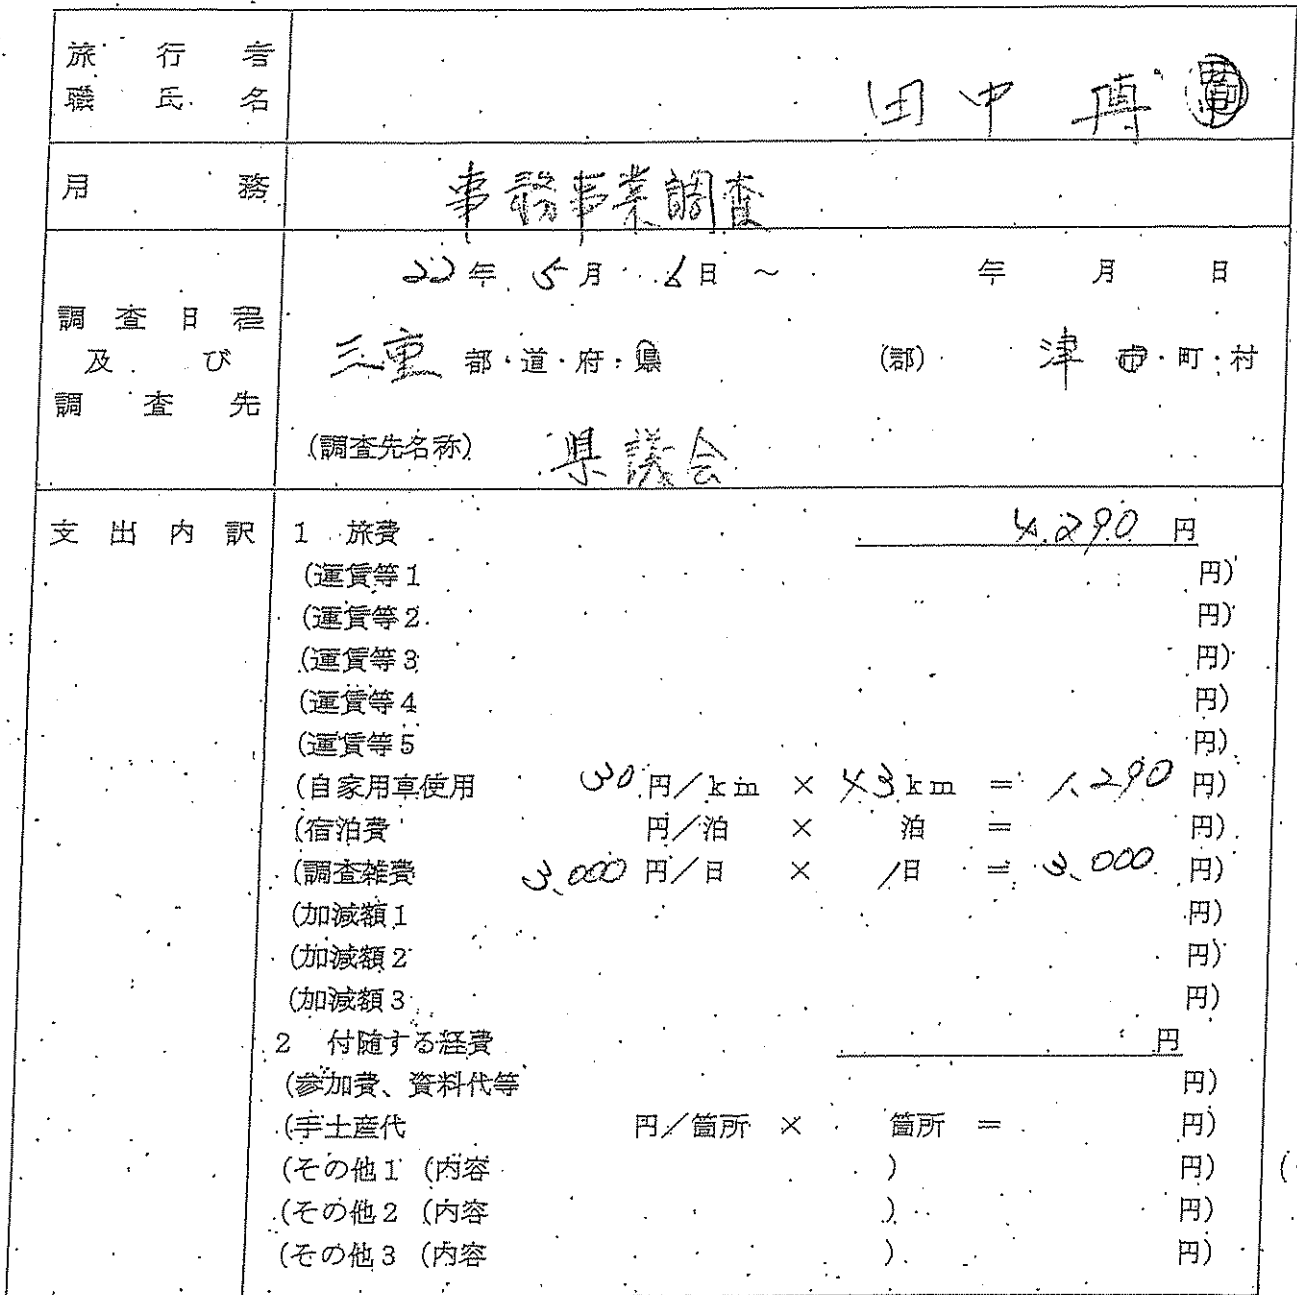 旅行者
職氏名
田中 博
用務
事務事業調査
調査日程
及び
調査先
22年 5月 6日 ~ 年 月 日
三重 都・道・府・県 (郡) 津 市・町・村
(調査先名称) 県議会
支出内訳
1 旅費 4,290 円
(運賃等1 円)
(運賃等2 円)
(運賃等3 円)
(運賃等4 円)
(運賃等5 円)
(自家用車使用 30 円/km × 43 km = 1,290 円)
(宿泊費 円/泊 × 泊 = 円)
(調査雑費 3,000 円/日 × 1日 = 3,000 円)
(加減額1 円)
(加減額2 円)
(加減額3 円)
2 付随する経費 円
(参加費、資料代等 円)
(手土産代 円/箇所 × 箇所 = 円)
(その他1 (内容 ) 円)
(その他2 (内容 ) 円)
(その他3 (内容 ) 円)